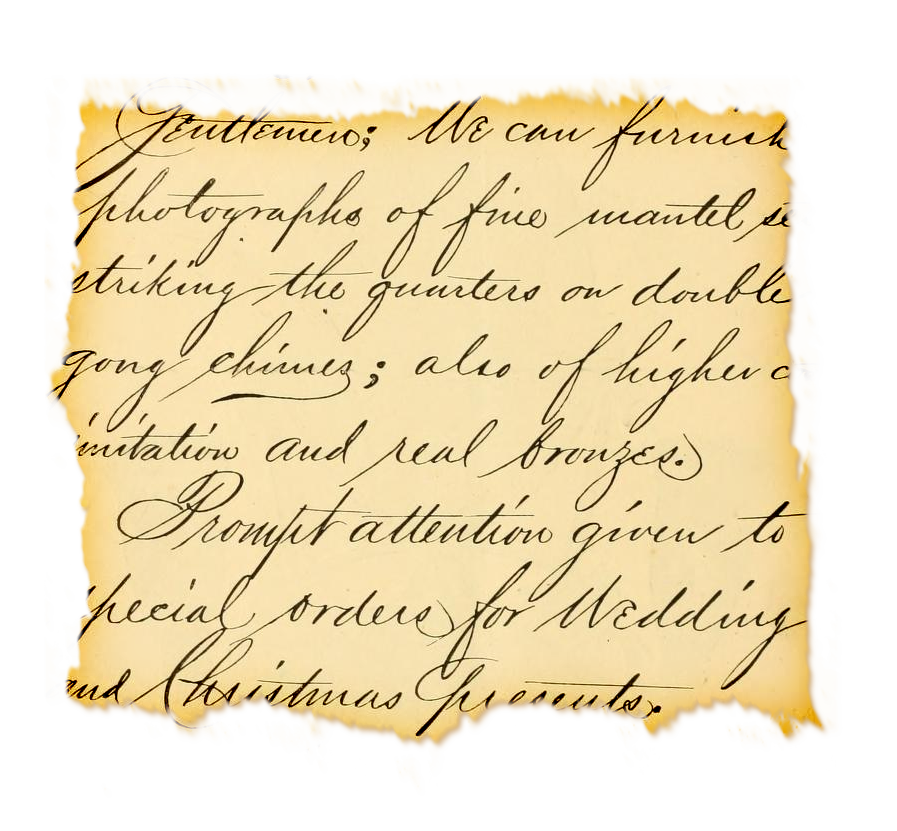 Gentlemen; We can furnish
photographs of fine mantel se
striking the quarters on double
gong chimes; also of higher c
imitation and real bronzes.
Prompt attention given to
special orders for Wedding
and Christmas Presents.